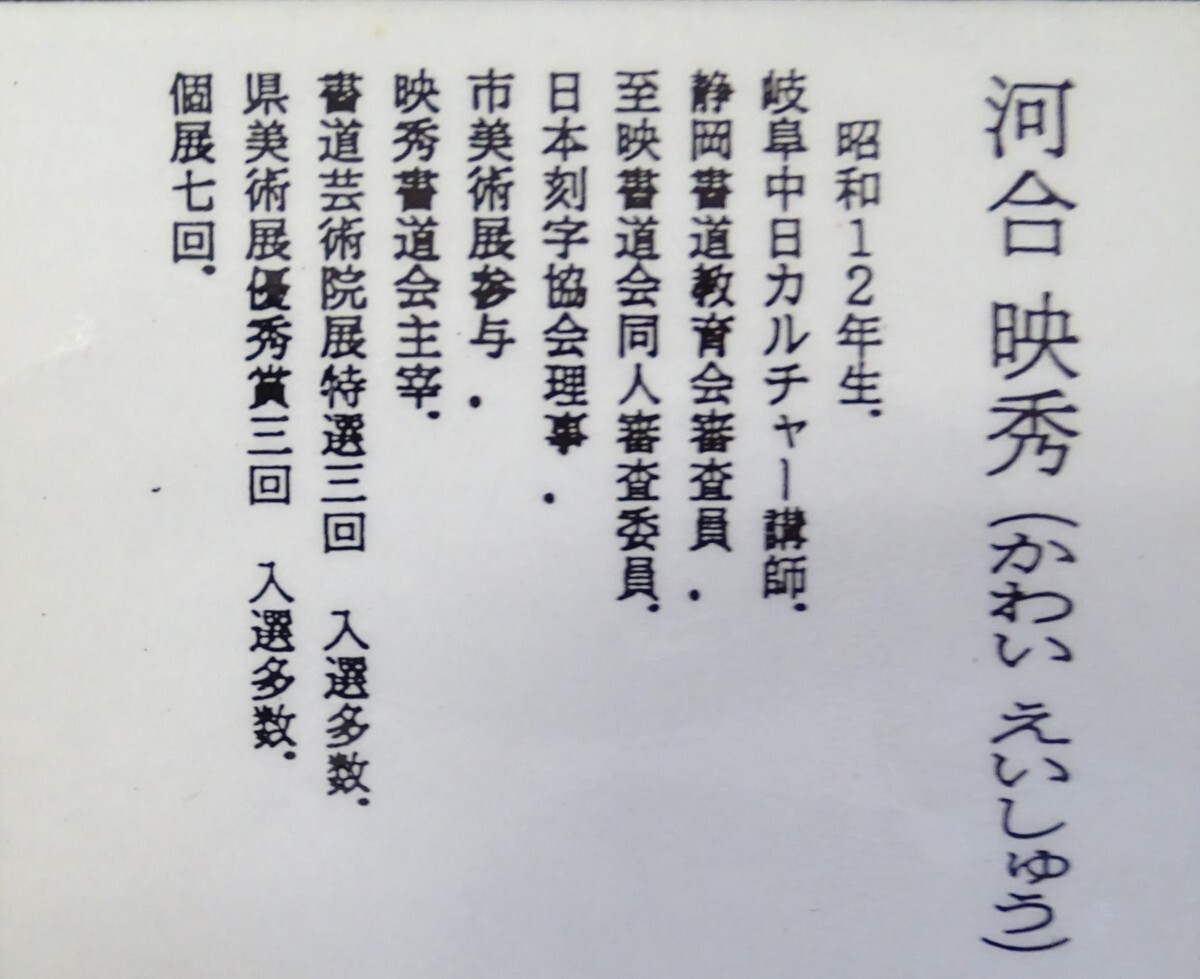 河合 映秀（かわい えいしゅう）
昭和12年生．
岐阜中日カルチャー講師．
静岡書道教育会審査員．
至映書道会同人審査委員．
日本刻字協会理事．
市美術展参与．
映秀書道会主宰．
書道芸術院展特選三回　入選多数．
県美術展優秀賞三回　入選多数．
個展七回．